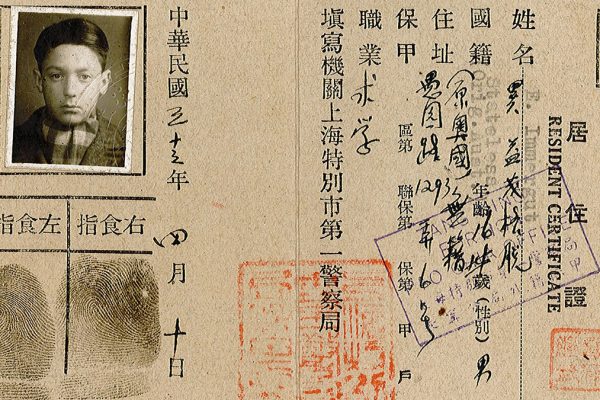 居住證
RESIDENT CERTIFICATE
姓名 益茂格脱
E. Imm
Stateless
國籍（原奧國）無籍 年齡 歲（性別）男
住址 愚園路1293弄6号
保甲 區第 聯保第 保第 甲 戶
職業 求学
填寫機關上海特別市第一警察局
中華民國三十三年四月十日
右食指
左食指